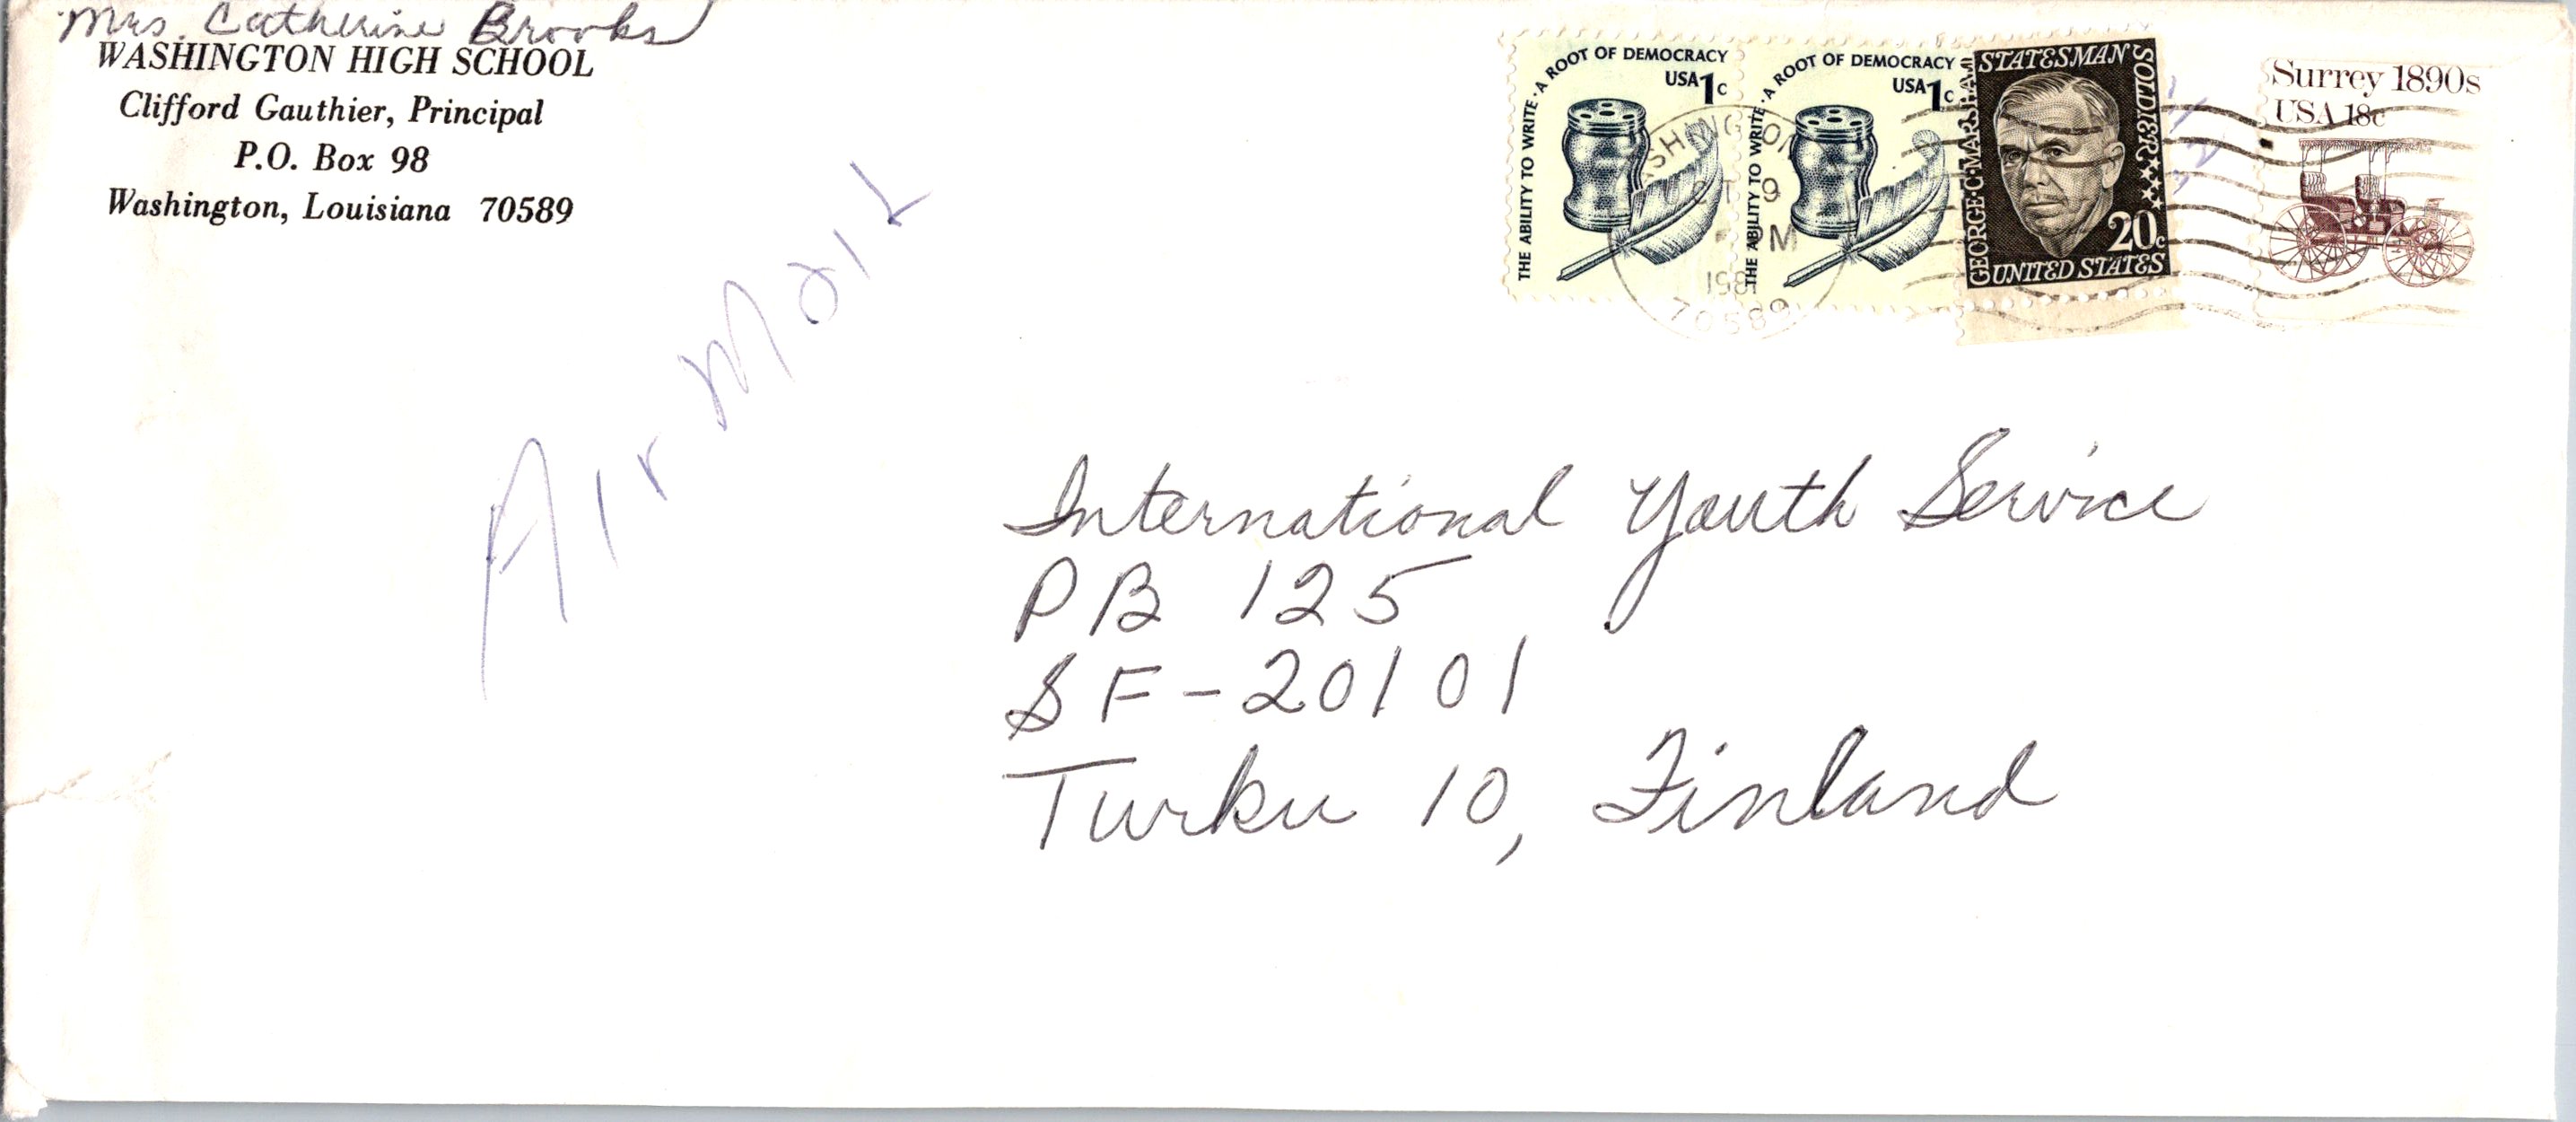 Mrs. Catherine Brooks
WASHINGTON HIGH SCHOOL
Clifford Gauthier, Principal
P.O. Box 98
Washington, Louisiana 70589
Air Mail
THE ABILITY TO WRITE · A ROOT OF DEMOCRACY
USA 1c
THE ABILITY TO WRITE · A ROOT OF DEMOCRACY
USA 1c
GEORGE·C·MARSHALL
STATESMAN
SOLDIER
20c
UNITED STATES
Surrey 1890s
USA 18c
OCT 9
1981
70589
International Youth Service
PB 125
SF-20101
Turku 10, Finland